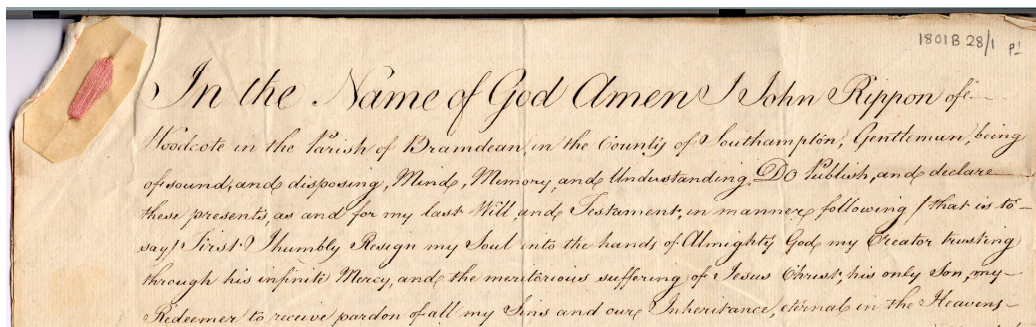 1801B 28/1 p1
In the Name of God Amen I John Rippon of
Woodcote in the Parish of Bramdean, in the County of Southampton, Gentleman, being
of sound, and disposing, Mind, Memory, and Understanding, Do Publish, and declare
these presents, as and for my last Will, and Testament, in manner following (that is to
say) First I humbly Resign my Soul into the hands of Almighty God, my Creator trusting
through his infinite Mercy, and the meritorious suffering of Jesus Christ, his only Son, my
Redeemer to receive pardon of all my Sins and Inheritance, eternal in the Heavens